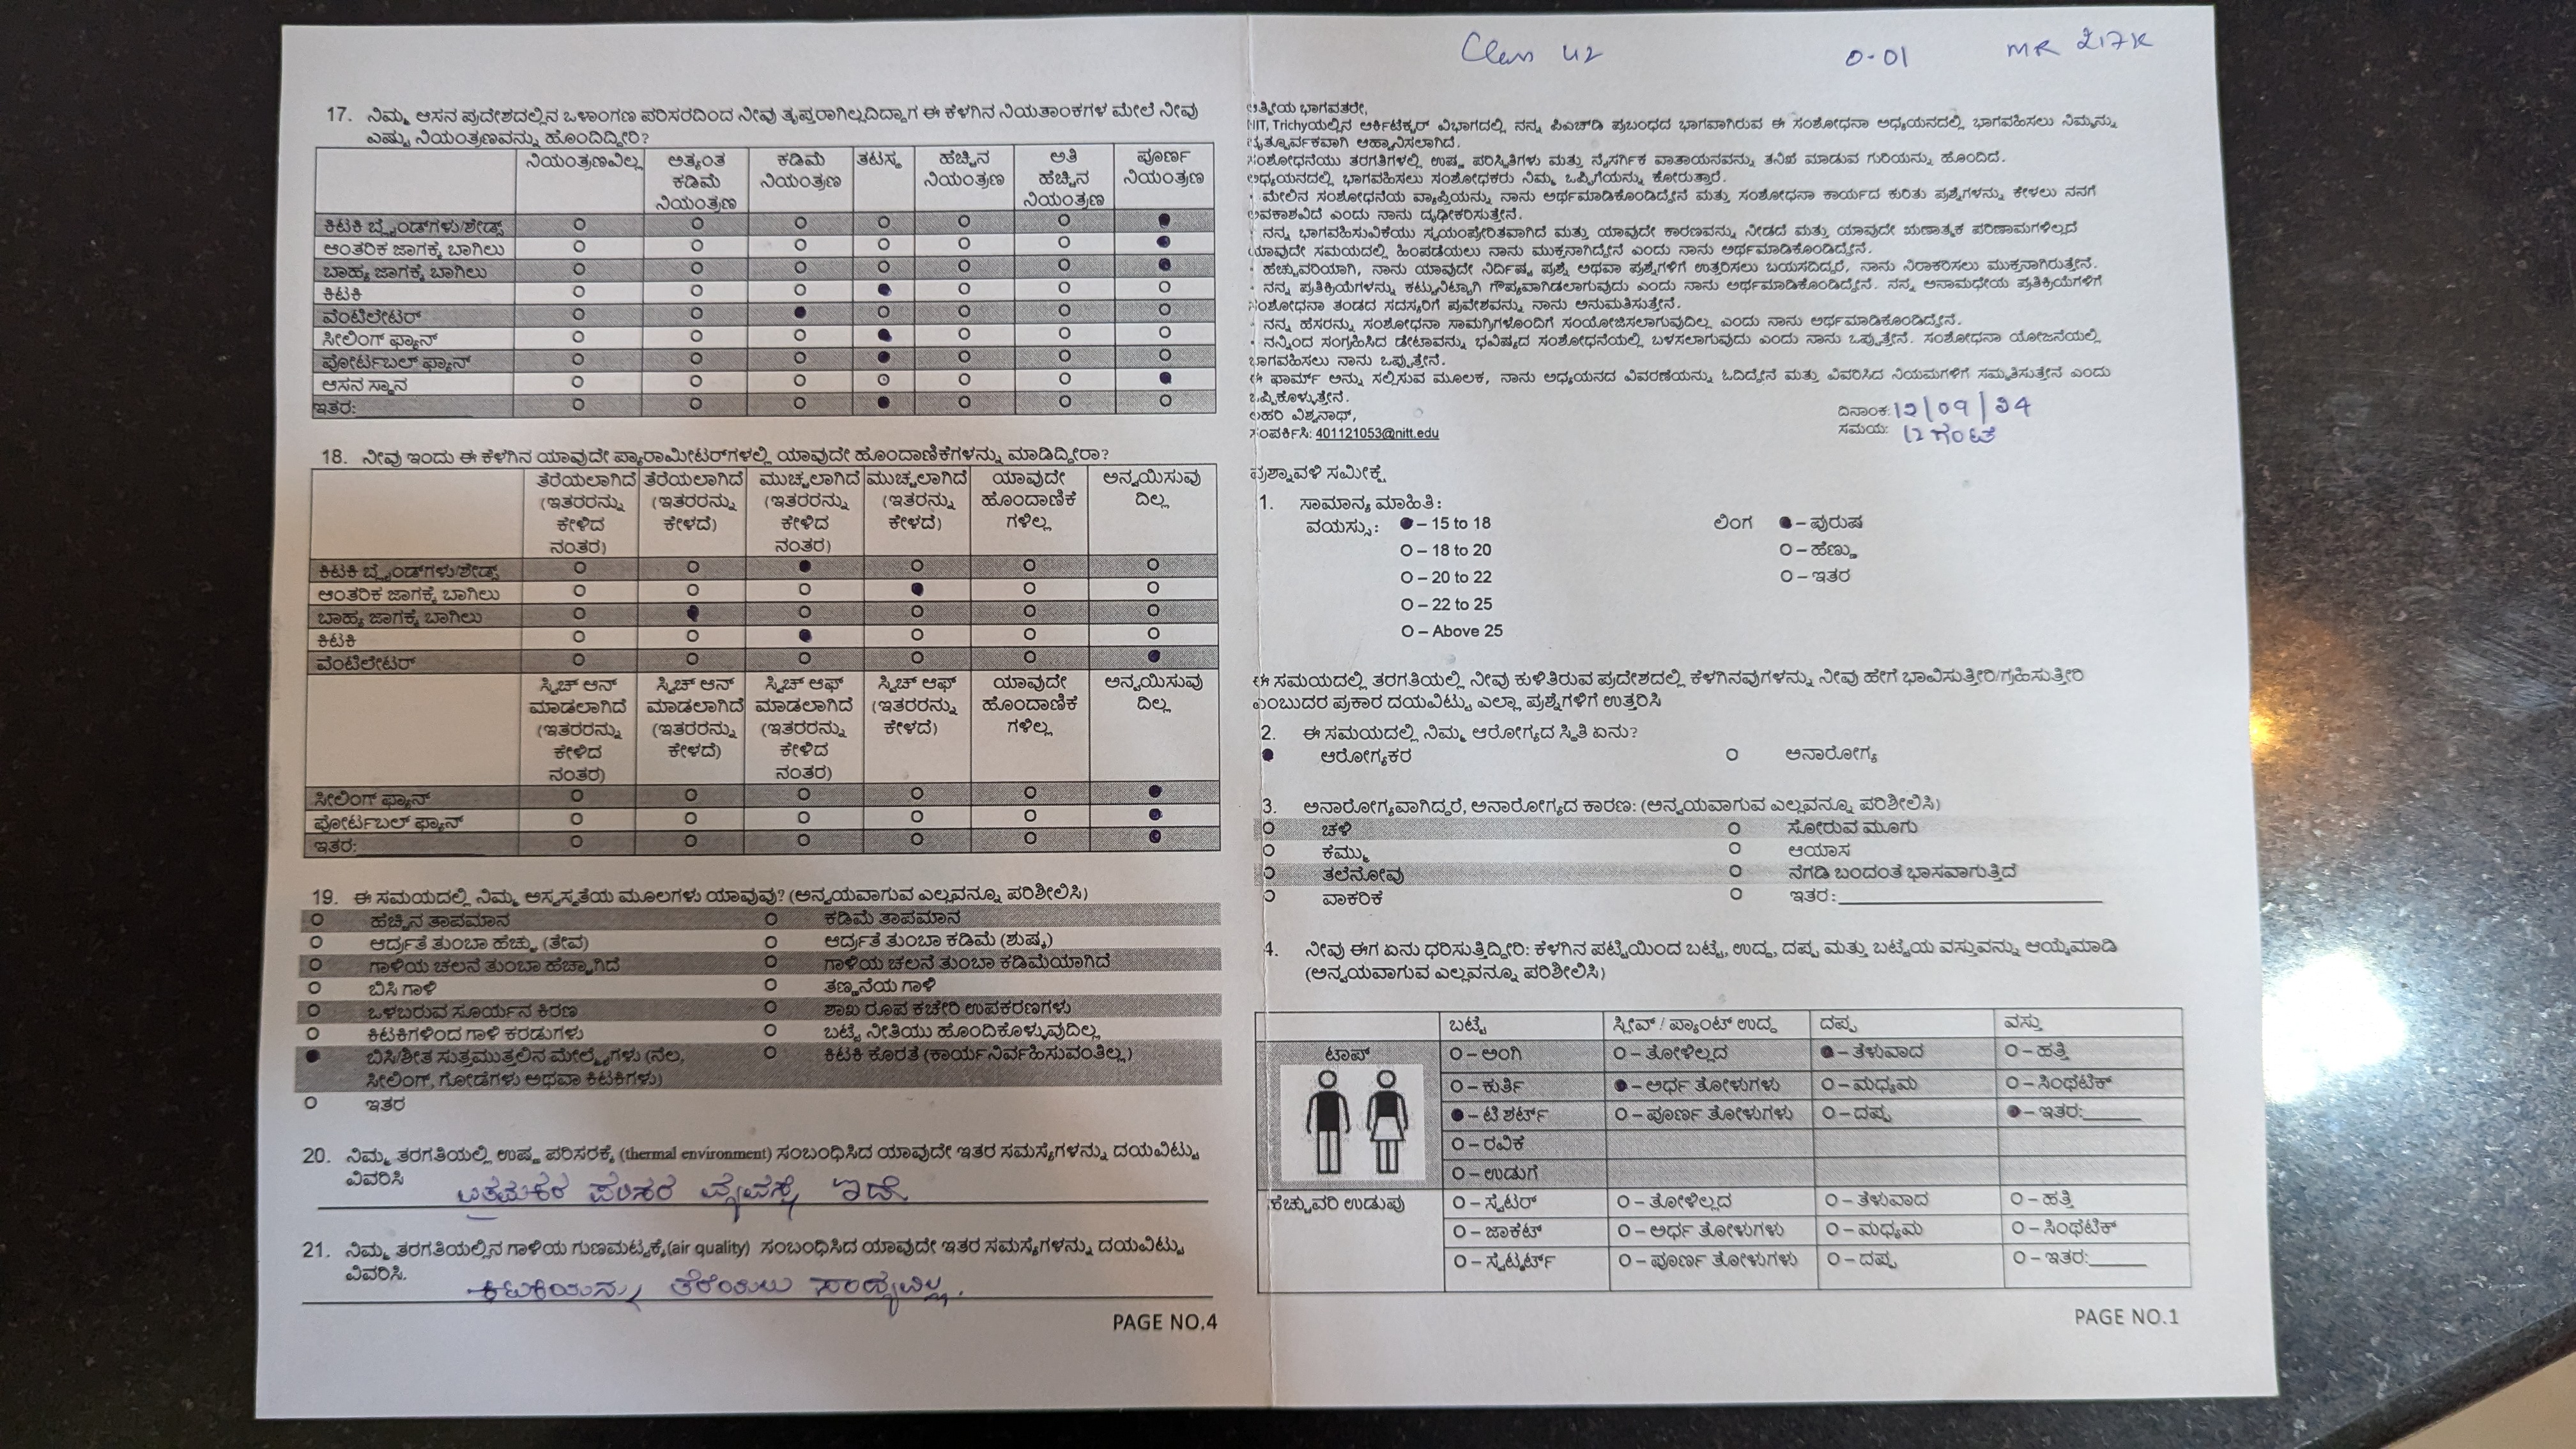 17. ನಿಮ್ಮ ಆಸನ ಪ್ರದೇಶದಲ್ಲಿನ ಒಳಾಂಗಣ ಪರಿಸರದಿಂದ ನೀವು ತೃಪ್ತರಾಗಿಲ್ಲದಿದ್ದಾಗ ಈ ಕೆಳಗಿನ ನಿಯತಾಂಕಗಳ ಮೇಲೆ ನೀವು
ಎಷ್ಟು ನಿಯಂತ್ರಣವನ್ನು ಹೊಂದಿದ್ದೀರಿ?
ನಿಯಂತ್ರಣವಿಲ್ಲ ಅತ್ಯಂತ ಕಡಿಮೆ ನಿಯಂತ್ರಣ ಕಡಿಮೆ ನಿಯಂತ್ರಣ ತಟಸ್ಥ ಹೆಚ್ಚಿನ ನಿಯಂತ್ರಣ ಅತಿ ಹೆಚ್ಚಿನ ನಿಯಂತ್ರಣ ಪೂರ್ಣ ನಿಯಂತ್ರಣ
ಕಿಟಕಿ ಬ್ಲೈಂಡ್‌ಗಳು/ಶೇಡ್ಸ್
ಆಂತರಿಕ ಜಾಗಕ್ಕೆ ಬಾಗಿಲು
ಬಾಹ್ಯ ಜಾಗಕ್ಕೆ ಬಾಗಿಲು
ಕಿಟಕಿ
ವೆಂಟಿಲೇಟರ್
ಸೀಲಿಂಗ್ ಫ್ಯಾನ್
ಪೋರ್ಟಬಲ್ ಫ್ಯಾನ್
ಆಸನ ಸ್ಥಾನ
ಇತರ:
18. ನೀವು ಇಂದು ಈ ಕೆಳಗಿನ ಯಾವುದೇ ಪ್ಯಾರಾಮೀಟರ್‌ಗಳಲ್ಲಿ ಯಾವುದೇ ಹೊಂದಾಣಿಕೆಗಳನ್ನು ಮಾಡಿದ್ದೀರಾ?
ತೆರೆಯಲಾಗಿದೆ (ಇತರರನ್ನು ಕೇಳಿದ ನಂತರ) ತೆರೆಯಲಾಗಿದೆ (ಇತರರನ್ನು ಕೇಳದೆ) ಮುಚ್ಚಲಾಗಿದೆ (ಇತರರನ್ನು ಕೇಳಿದ ನಂತರ) ಮುಚ್ಚಲಾಗಿದೆ (ಇತರರನ್ನು ಕೇಳದೆ) ಯಾವುದೇ ಹೊಂದಾಣಿಕೆ ಗಳಿಲ್ಲ ಅನ್ವಯಿಸುವು ದಿಲ್ಲ
ಕಿಟಕಿ ಬ್ಲೈಂಡ್‌ಗಳು/ಶೇಡ್ಸ್
ಆಂತರಿಕ ಜಾಗಕ್ಕೆ ಬಾಗಿಲು
ಬಾಹ್ಯ ಜಾಗಕ್ಕೆ ಬಾಗಿಲು
ಕಿಟಕಿ
ವೆಂಟಿಲೇಟರ್
ಸ್ವಿಚ್ ಆನ್ ಮಾಡಲಾಗಿದೆ (ಇತರರನ್ನು ಕೇಳಿದ ನಂತರ) ಸ್ವಿಚ್ ಆನ್ ಮಾಡಲಾಗಿದೆ (ಇತರರನ್ನು ಕೇಳದೆ) ಸ್ವಿಚ್ ಆಫ್ ಮಾಡಲಾಗಿದೆ (ಇತರರನ್ನು ಕೇಳಿದ ನಂತರ) ಸ್ವಿಚ್ ಆಫ್ (ಇತರರನ್ನು ಕೇಳದೆ) ಯಾವುದೇ ಹೊಂದಾಣಿಕೆ ಗಳಿಲ್ಲ ಅನ್ವಯಿಸುವು ದಿಲ್ಲ
ಸೀಲಿಂಗ್ ಫ್ಯಾನ್
ಪೋರ್ಟಬಲ್ ಫ್ಯಾನ್
ಇತರ:
19. ಈ ಸಮಯದಲ್ಲಿ ನಿಮ್ಮ ಅಸ್ವಸ್ಥತೆಯ ಮೂಲಗಳು ಯಾವುವು? (ಅನ್ವಯವಾಗುವ ಎಲ್ಲವನ್ನೂ ಪರಿಶೀಲಿಸಿ)
ಹೆಚ್ಚಿನ ತಾಪಮಾನ ಕಡಿಮೆ ತಾಪಮಾನ
ಆರ್ದ್ರತೆ ತುಂಬಾ ಹೆಚ್ಚು (ತೇವ) ಆರ್ದ್ರತೆ ತುಂಬಾ ಕಡಿಮೆ (ಶುಷ್ಕ)
ಗಾಳಿಯ ಚಲನೆ ತುಂಬಾ ಹೆಚ್ಚಾಗಿದೆ ಗಾಳಿಯ ಚಲನೆ ತುಂಬಾ ಕಡಿಮೆಯಾಗಿದೆ
ಬಿಸಿ ಗಾಳಿ ತಣ್ಣನೆಯ ಗಾಳಿ
ಒಳಬರುವ ಸೂರ್ಯನ ಕಿರಣ ಶಾಖ ರೂಪ ಕಚೇರಿ ಉಪಕರಣಗಳು
ಕಿಟಕಿಗಳಿಂದ ಗಾಳಿ ಕರಡುಗಳು ಬಟ್ಟೆ ನೀತಿಯು ಹೊಂದಿಕೊಳ್ಳುವುದಿಲ್ಲ
ಬಿಸಿ/ಶೀತ ಸುತ್ತಮುತ್ತಲಿನ ಮೇಲ್ಮೈಗಳು (ನೆಲ, ಕಿಟಕಿ ಕೊರತೆ (ಕಾರ್ಯನಿರ್ವಹಿಸುವಂತಿಲ್ಲ)
ಸೀಲಿಂಗ್, ಗೋಡೆಗಳು ಅಥವಾ ಕಿಟಕಿಗಳು)
ಇತರ
20. ನಿಮ್ಮ ತರಗತಿಯಲ್ಲಿ ಉಷ್ಣ ಪರಿಸರಕ್ಕೆ (thermal environment) ಸಂಬಂಧಿಸಿದ ಯಾವುದೇ ಇತರ ಸಮಸ್ಯೆಗಳನ್ನು ದಯವಿಟ್ಟು
ವಿವರಿಸಿ
ಪರಿಸರ ವ್ಯವಸ್ಥೆ ಇದೆ
21. ನಿಮ್ಮ ತರಗತಿಯಲ್ಲಿನ ಗಾಳಿಯ ಗುಣಮಟ್ಟಕ್ಕೆ(air quality) ಸಂಬಂಧಿಸಿದ ಯಾವುದೇ ಇತರ ಸಮಸ್ಯೆಗಳನ್ನು ದಯವಿಟ್ಟು
ವಿವರಿಸಿ.
ಕಿಟಕಿಯನ್ನು ತೆರೆಯಲು ಸಾಧ್ಯವಿಲ್ಲ.
PAGE NO.4
Class U2 0-01 MR 217K
ಆತ್ಮೀಯ ಭಾಗವತರೇ,
NIT, Trichyಯಲ್ಲಿನ ಆರ್ಕಿಟೆಕ್ಚರ್ ವಿಭಾಗದಲ್ಲಿ ನನ್ನ ಪಿಎಚ್‌ಡಿ ಪ್ರಬಂಧದ ಭಾಗವಾಗಿರುವ ಈ ಸಂಶೋಧನಾ ಅಧ್ಯಯನದಲ್ಲಿ ಭಾಗವಹಿಸಲು ನಿಮ್ಮನ್ನು
ಹೃತ್ಪೂರ್ವಕವಾಗಿ ಆಹ್ವಾನಿಸಲಾಗಿದೆ.
ಸಂಶೋಧನೆಯು ತರಗತಿಗಳಲ್ಲಿ ಉಷ್ಣ ಪರಿಸ್ಥಿತಿಗಳು ಮತ್ತು ನೈಸರ್ಗಿಕ ವಾತಾಯನವನ್ನು ತನಿಖೆ ಮಾಡುವ ಗುರಿಯನ್ನು ಹೊಂದಿದೆ.
ಅಧ್ಯಯನದಲ್ಲಿ ಭಾಗವಹಿಸಲು ಸಂಶೋಧಕರು ನಿಮ್ಮ ಒಪ್ಪಿಗೆಯನ್ನು ಕೋರುತ್ತಾರೆ.
· ಮೇಲಿನ ಸಂಶೋಧನೆಯ ವ್ಯಾಪ್ತಿಯನ್ನು ನಾನು ಅರ್ಥಮಾಡಿಕೊಂಡಿದ್ದೇನೆ ಮತ್ತು ಸಂಶೋಧನಾ ಕಾರ್ಯದ ಕುರಿತು ಪ್ರಶ್ನೆಗಳನ್ನು ಕೇಳಲು ನನಗೆ
ಅವಕಾಶವಿದೆ ಎಂದು ನಾನು ದೃಢೀಕರಿಸುತ್ತೇನೆ.
· ನನ್ನ ಭಾಗವಹಿಸುವಿಕೆಯು ಸ್ವಯಂಪ್ರೇರಿತವಾಗಿದೆ ಮತ್ತು ಯಾವುದೇ ಕಾರಣವನ್ನು ನೀಡದೆ ಮತ್ತು ಯಾವುದೇ ಋಣಾತ್ಮಕ ಪರಿಣಾಮಗಳಿಲ್ಲದೆ
ಯಾವುದೇ ಸಮಯದಲ್ಲಿ ಹಿಂಪಡೆಯಲು ನಾನು ಮುಕ್ತನಾಗಿದ್ದೇನೆ ಎಂದು ನಾನು ಅರ್ಥಮಾಡಿಕೊಂಡಿದ್ದೇನೆ.
· ಹೆಚ್ಚುವರಿಯಾಗಿ, ನಾನು ಯಾವುದೇ ನಿರ್ದಿಷ್ಟ ಪ್ರಶ್ನೆ ಅಥವಾ ಪ್ರಶ್ನೆಗಳಿಗೆ ಉತ್ತರಿಸಲು ಬಯಸದಿದ್ದರೆ, ನಾನು ನಿರಾಕರಿಸಲು ಮುಕ್ತನಾಗಿರುತ್ತೇನೆ.
· ನನ್ನ ಪ್ರತಿಕ್ರಿಯೆಗಳನ್ನು ಕಟ್ಟುನಿಟ್ಟಾಗಿ ಗೌಪ್ಯವಾಗಿಡಲಾಗುವುದು ಎಂದು ನಾನು ಅರ್ಥಮಾಡಿಕೊಂಡಿದ್ದೇನೆ. ನನ್ನ ಅನಾಮಧೇಯ ಪ್ರತಿಕ್ರಿಯೆಗಳಿಗೆ
ಸಂಶೋಧನಾ ತಂಡದ ಸದಸ್ಯರಿಗೆ ಪ್ರವೇಶವನ್ನು ನಾನು ಅನುಮತಿಸುತ್ತೇನೆ.
· ನನ್ನ ಹೆಸರನ್ನು ಸಂಶೋಧನಾ ಸಾಮಗ್ರಿಗಳೊಂದಿಗೆ ಸಂಯೋಜಿಸಲಾಗುವುದಿಲ್ಲ ಎಂದು ನಾನು ಅರ್ಥಮಾಡಿಕೊಂಡಿದ್ದೇನೆ.
· ನನ್ನಿಂದ ಸಂಗ್ರಹಿಸಿದ ಡೇಟಾವನ್ನು ಭವಿಷ್ಯದ ಸಂಶೋಧನೆಯಲ್ಲಿ ಬಳಸಲಾಗುವುದು ಎಂದು ನಾನು ಒಪ್ಪುತ್ತೇನೆ. ಸಂಶೋಧನಾ ಯೋಜನೆಯಲ್ಲಿ
ಭಾಗವಹಿಸಲು ನಾನು ಒಪ್ಪುತ್ತೇನೆ.
ಈ ಫಾರ್ಮ್ ಅನ್ನು ಸಲ್ಲಿಸುವ ಮೂಲಕ, ನಾನು ಅಧ್ಯಯನದ ವಿವರಣೆಯನ್ನು ಓದಿದ್ದೇನೆ ಮತ್ತು ವಿವರಿಸಿದ ನಿಯಮಗಳಿಗೆ ಸಮ್ಮತಿಸುತ್ತೇನೆ ಎಂದು
ಒಪ್ಪಿಕೊಳ್ಳುತ್ತೇನೆ.
ಲಹರಿ ವಿಶ್ವನಾಥ್, ದಿನಾಂಕ: 12/09/24
ಸಂಪರ್ಕಿಸಿ: 401121053@nitt.edu ಸಮಯ: 12 ಗಂಟೆ
ಪ್ರಶ್ನಾವಳಿ ಸಮೀಕ್ಷೆ
1. ಸಾಮಾನ್ಯ ಮಾಹಿತಿ:
ವಯಸ್ಸು: – 15 to 18 ಲಿಂಗ – ಪುರುಷ
O – 18 to 20 O – ಹೆಣ್ಣು
O – 20 to 22 O – ಇತರ
O – 22 to 25
O – Above 25
ಈ ಸಮಯದಲ್ಲಿ ತರಗತಿಯಲ್ಲಿ ನೀವು ಕುಳಿತಿರುವ ಪ್ರದೇಶದಲ್ಲಿ ಕೆಳಗಿನವುಗಳನ್ನು ನೀವು ಹೇಗೆ ಭಾವಿಸುತ್ತೀರಿ/ಗ್ರಹಿಸುತ್ತೀರಿ
ಎಂಬುದರ ಪ್ರಕಾರ ದಯವಿಟ್ಟು ಎಲ್ಲಾ ಪ್ರಶ್ನೆಗಳಿಗೆ ಉತ್ತರಿಸಿ
2. ಈ ಸಮಯದಲ್ಲಿ ನಿಮ್ಮ ಆರೋಗ್ಯದ ಸ್ಥಿತಿ ಏನು?
ಆರೋಗ್ಯಕರ ಅನಾರೋಗ್ಯ
3. ಅನಾರೋಗ್ಯವಾಗಿದ್ದರೆ, ಅನಾರೋಗ್ಯದ ಕಾರಣ: (ಅನ್ವಯವಾಗುವ ಎಲ್ಲವನ್ನೂ ಪರಿಶೀಲಿಸಿ)
ಚಳಿ ಸೋರುವ ಮೂಗು
ಕೆಮ್ಮು ಆಯಾಸ
ತಲೆನೋವು ನೆಗಡಿ ಬಂದಂತೆ ಭಾಸವಾಗುತ್ತಿದೆ
ವಾಕರಿಕೆ ಇತರ:
4. ನೀವು ಈಗ ಏನು ಧರಿಸುತ್ತಿದ್ದೀರಿ: ಕೆಳಗಿನ ಪಟ್ಟಿಯಿಂದ ಬಟ್ಟೆ, ಉದ್ದ, ದಪ್ಪ ಮತ್ತು ಬಟ್ಟೆಯ ವಸ್ತುವನ್ನು ಆಯ್ಕೆಮಾಡಿ
(ಅನ್ವಯವಾಗುವ ಎಲ್ಲವನ್ನೂ ಪರಿಶೀಲಿಸಿ)
ಬಟ್ಟೆ ಸ್ಲೀವ್ / ಪ್ಯಾಂಟ್ ಉದ್ದ ದಪ್ಪ ವಸ್ತು
ಟಾಪ್ O – ಅಂಗಿ O – ತೋಳಿಲ್ಲದ – ತೆಳುವಾದ O – ಹತ್ತಿ
O – ಕುರ್ತಿ – ಅರ್ಧ ತೋಳುಗಳು O – ಮಧ್ಯಮ O – ಸಿಂಥೆಟಿಕ್
– ಟಿ ಶರ್ಟ್ O – ಪೂರ್ಣ ತೋಳುಗಳು O – ದಪ್ಪ – ಇತರ:
O – ರವಿಕೆ
O – ಉಡುಗೆ
ಹೆಚ್ಚುವರಿ ಉಡುಪು O – ಸ್ವೆಟರ್ O – ತೋಳಿಲ್ಲದ O – ತೆಳುವಾದ O – ಹತ್ತಿ
O – ಜಾಕೆಟ್ O – ಅರ್ಧ ತೋಳುಗಳು O – ಮಧ್ಯಮ O – ಸಿಂಥೆಟಿಕ್
O – ಸ್ವೆಟ್ಶರ್ಟ್ O – ಪೂರ್ಣ ತೋಳುಗಳು O – ದಪ್ಪ O – ಇತರ:
PAGE NO.1